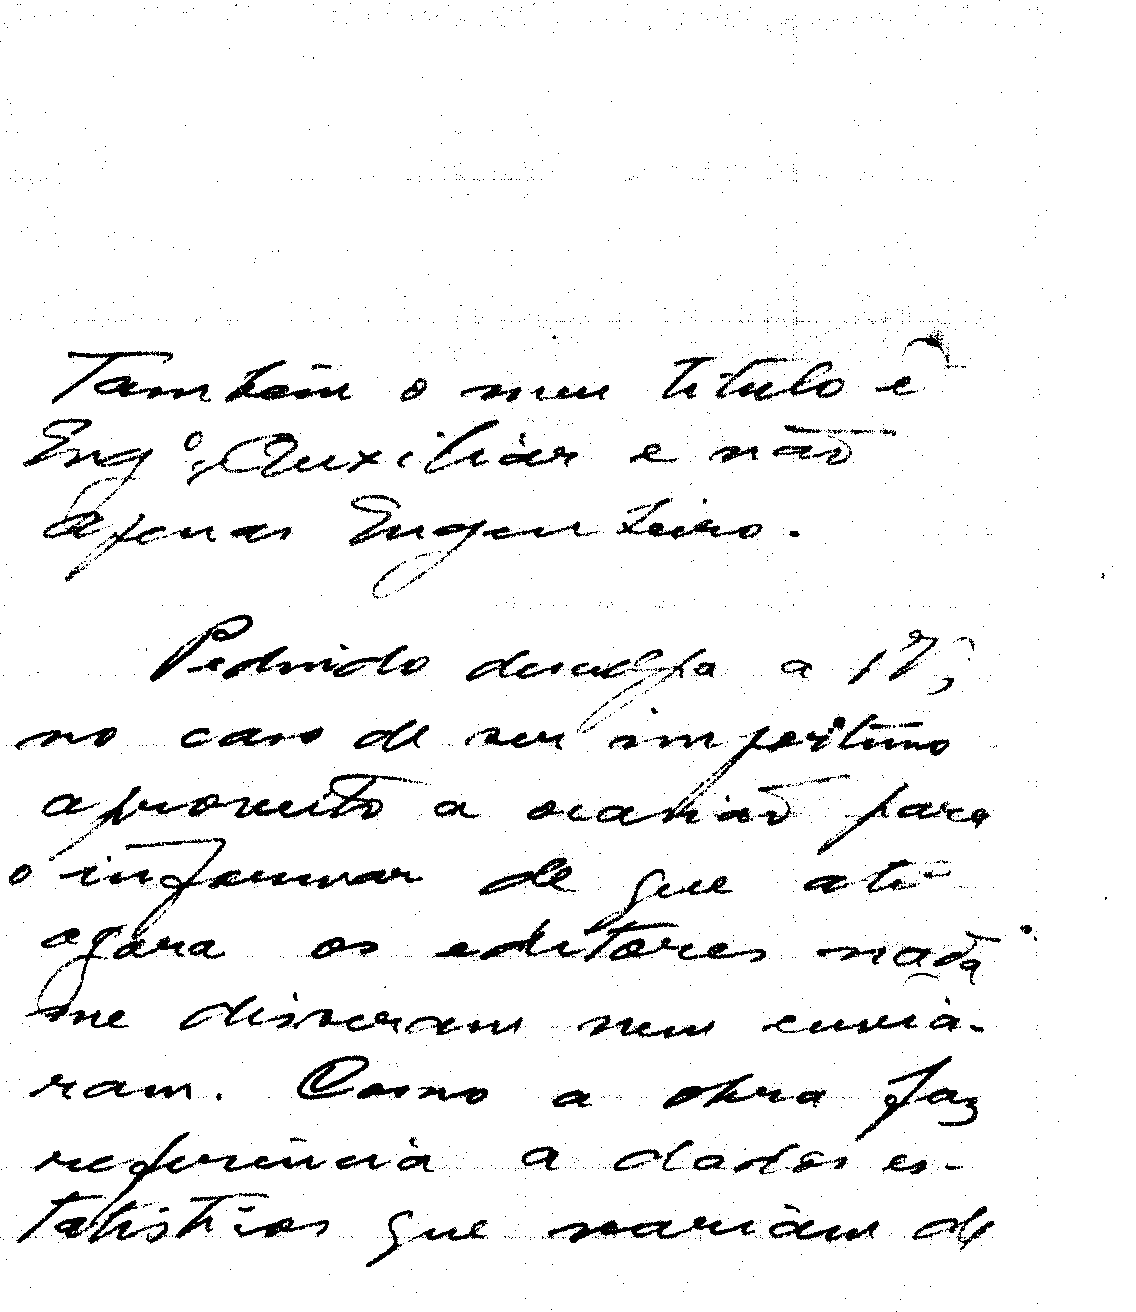 Também o meu titulo é
Engº. Auxiliar e não
apenas Engenheiro.
Pedindo desculpa a V,
no caso de ser importuno
aproveito a ocasião para
o informar de que até
agora os editores nada
me disseram nem envia-
ram. Como a obra faz
referência a dados es-
tatísticos que variam de